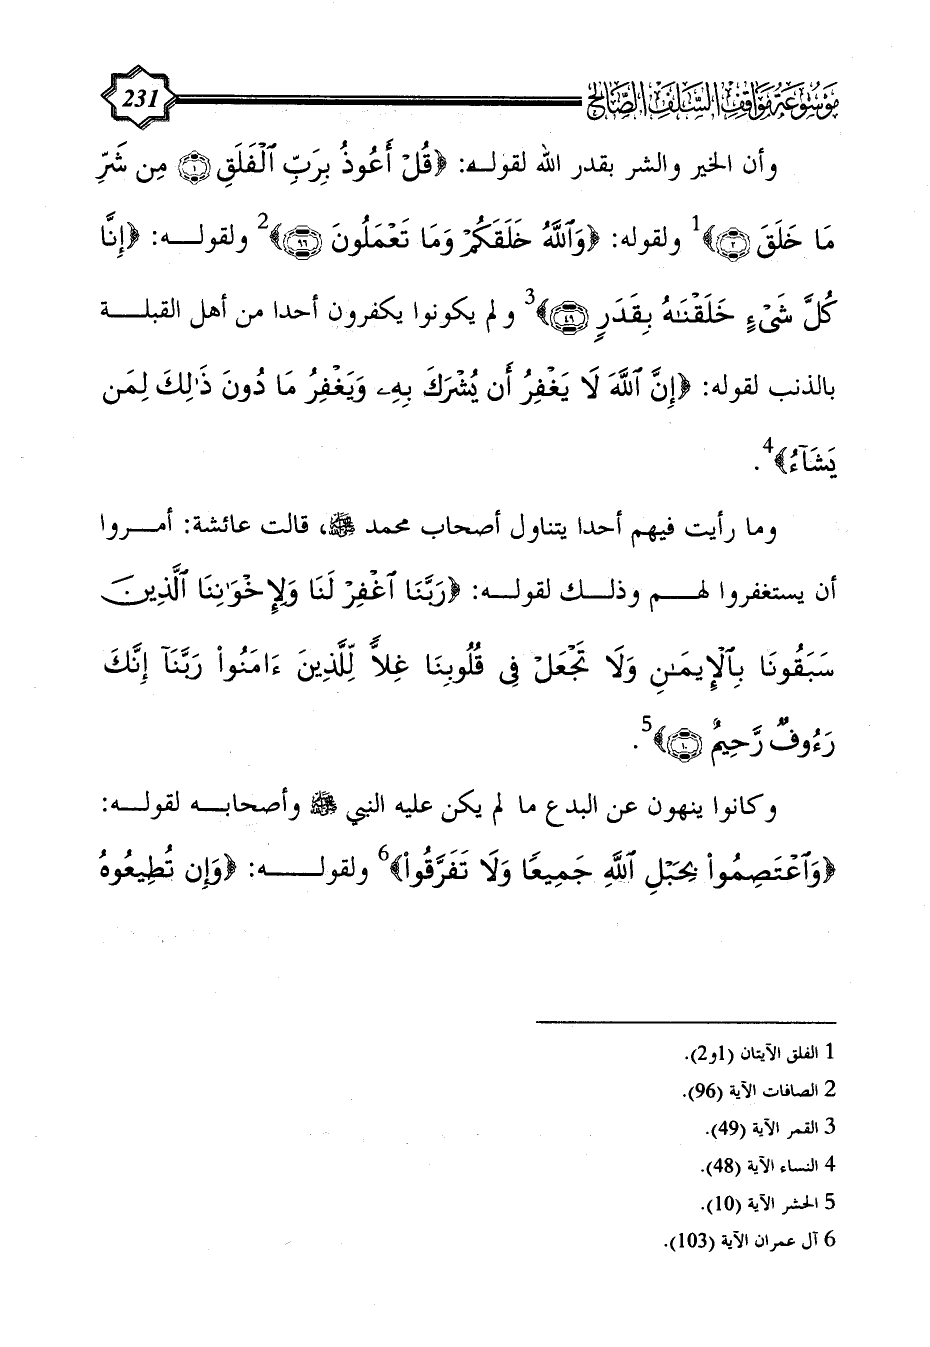 موسوعة مواقف السلف الصالح 231
وأن الخير والشر بقدر الله لقوله: ﴿قُلْ أَعُوذُ بِرَبِّ ٱلْفَلَقِ ۝١ مِن شَرِّ
مَا خَلَقَ ۝٢﴾1 ولقوله: ﴿وَٱللَّهُ خَلَقَكُمْ وَمَا تَعْمَلُونَ ۝٩٦﴾2 ولقولـــه: ﴿إِنَّا
كُلَّ شَىْءٍ خَلَقْنَٰهُ بِقَدَرٍ ۝٤٩﴾3 ولم يكونوا يكفرون أحدا من أهل القبلـــة
بالذنب لقوله: ﴿إِنَّ ٱللَّهَ لَا يَغْفِرُ أَن يُشْرَكَ بِهِۦ وَيَغْفِرُ مَا دُونَ ذَٰلِكَ لِمَن
يَشَآءُ﴾4.
وما رأيت فيهم أحدا يتناول أصحاب محمد ﷺ، قالت عائشة: أمـــروا
أن يستغفروا لهـــم وذلـــك لقولـــه: ﴿رَبَّنَا ٱغْفِرْ لَنَا وَلِإِخْوَٰنِنَا ٱلَّذِينَ
سَبَقُونَا بِٱلْإِيمَٰنِ وَلَا تَجْعَلْ فِى قُلُوبِنَا غِلًّا لِّلَّذِينَ ءَامَنُوا۟ رَبَّنَآ إِنَّكَ
رَءُوفٌ رَّحِيمٌ ۝١٠﴾5.
وكانوا ينهون عن البدع ما لم يكن عليه النبي ﷺ وأصحابـــه لقولـــه:
﴿وَٱعْتَصِمُوا۟ بِحَبْلِ ٱللَّهِ جَمِيعًا وَلَا تَفَرَّقُوا۟﴾6 ولقولـــــه: ﴿وَإِن تُطِيعُوهُ
1 الفلق الآيتان (1و2).
2 الصافات الآية (96).
3 القمر الآية (49).
4 النساء الآية (48).
5 الحشر الآية (10).
6 آل عمران الآية (103).